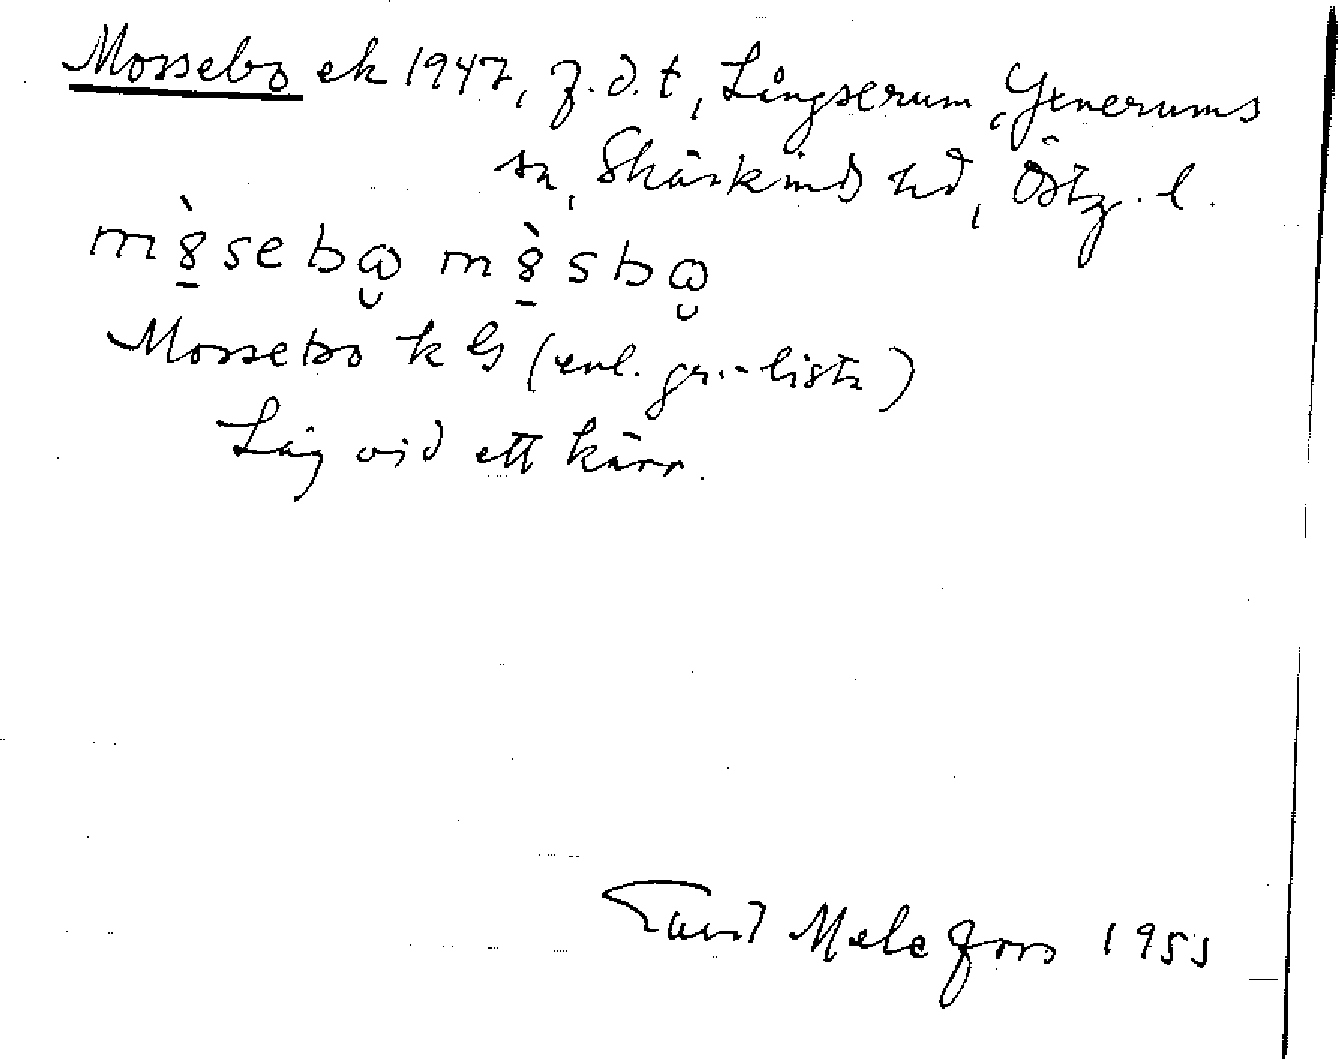 Mossebo ek 1947, f.d.t, Långserum, Yxnerums
sn, Skärkinds hd, Östg. l.
m&#768;8sebω mṡ8sbω
Mossebo k B (enl. gr.-lista)
Låg vid ett kärr.
Evert Melefors 1955